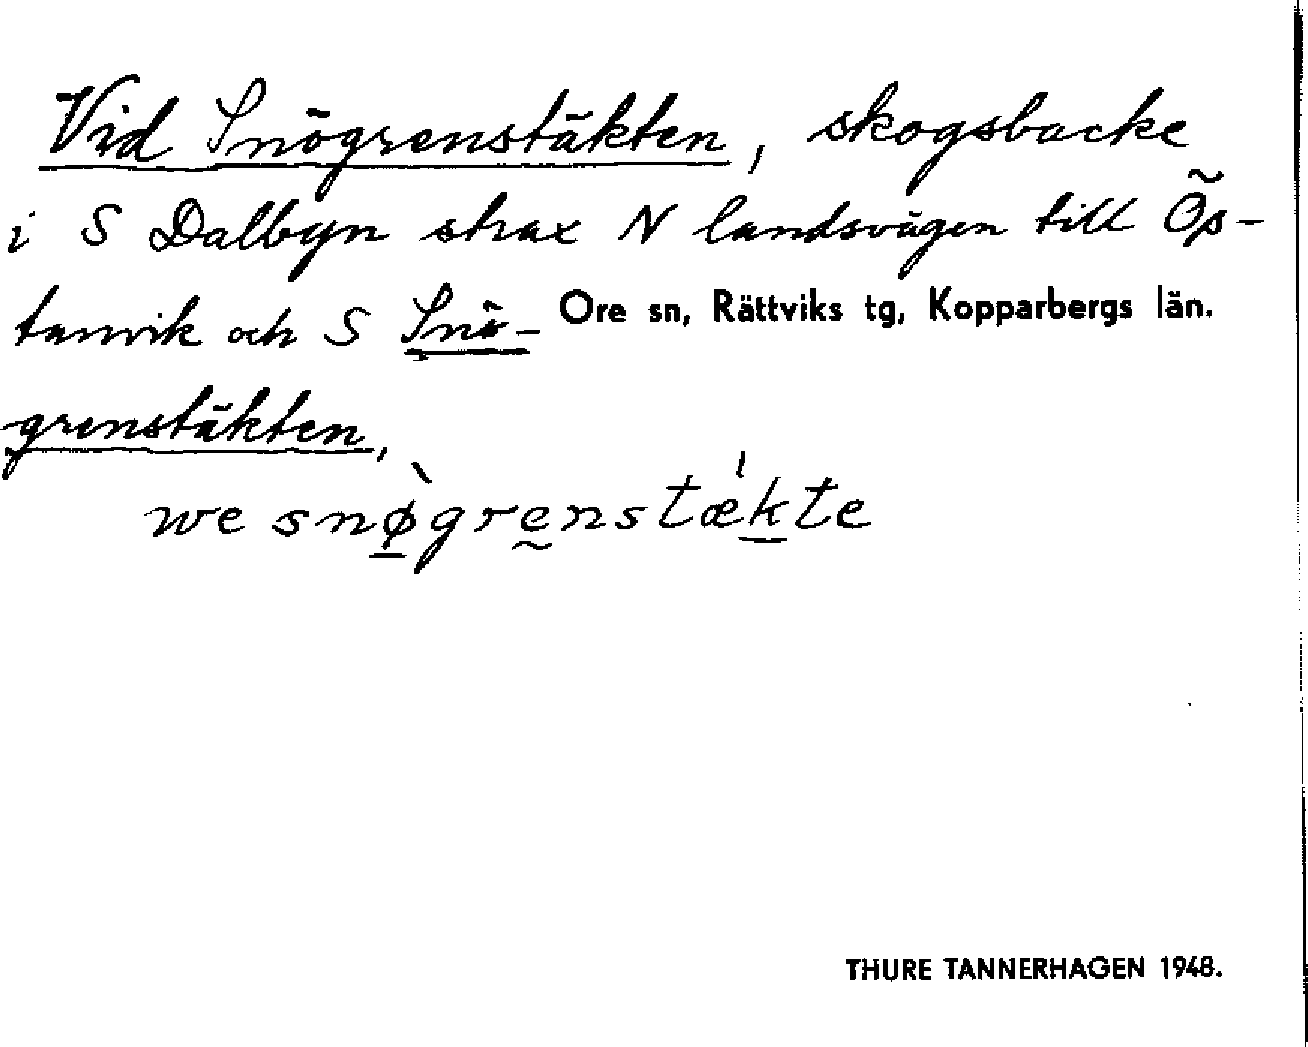 Vid Snögrenstäkten, skogsbacke
i S Dalbyn strax N landsvägen till Öp-
tanvik och S Snö-
Ore sn, Rättviks tg, Kopparbergs län.
grenstäkten,
we snø̀grenstæ̍kte
THURE TANNERHAGEN 1948.